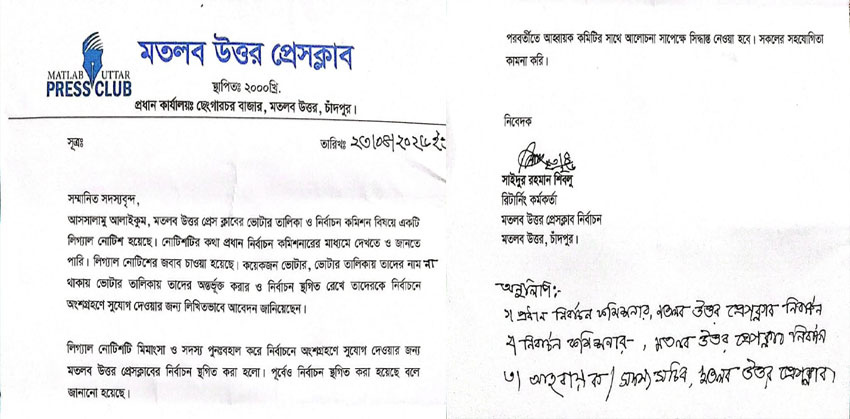 মতলব উত্তর প্রেসক্লাব
MATLAB UTTAR
PRESS CLUB
স্থাপিতঃ ২০০০খ্রি.
প্রধান কার্যালয়ঃ ছেংগারচর বাজার, মতলব উত্তর, চাঁদপুর।
সূত্রঃ
তারিখঃ
সম্মানিত সদস্যবৃন্দ,
আসসালামু আলাইকুম, মতলব উত্তর প্রেস ক্লাবের ভোটার তালিকা ও নির্বাচন কমিশন বিষয়ে একটি
লিগ্যাল নোটিশ হয়েছে। নোটিশটির কথা প্রধান নির্বাচন কমিশনারের মাধ্যমে দেখতে ও জানতে
পারি। লিগ্যাল নোটিশের জবাব চাওয়া হয়েছে। কয়েকজন ভোটার, ভোটার তালিকায় তাদের নাম না
থাকায় ভোটার তালিকায় তাদের অন্তর্ভূক্ত করার ও নির্বাচন স্থগিত রেখে তাদেরকে নির্বাচনে
অংশগ্রহণে সুযোগ দেওয়ার জন্য লিখিতভাবে আবেদন জানিয়েছেন।
লিগ্যাল নোটিশটি মিমাংসা ও সদস্য পুনঃবহাল করে নির্বাচনে অংশগ্রহণে সুযোগ দেওয়ার জন্য
মতলব উত্তর প্রেসক্লাবের নির্বাচন স্থগিত করা হলো। পূর্বেও নির্বাচন স্থগিত করা হয়েছে বলে
জানানো হয়েছে।
পরবর্তীতে আহ্বায়ক কমিটির সাথে আলোচনা সাপেক্ষে সিদ্ধান্ত নেওয়া হবে। সকলের সহযোগিতা
কামনা করি।
নিবেদক
সাইদুর রহমান শিবলু
রিটার্নিং কর্মকর্তা
মতলব উত্তর প্রেসক্লাব নির্বাচন
মতলব উত্তর, চাঁদপুর।
অনুলিপি:-
১। প্রধান নির্বাচন কমিশনার, মতলব উত্তর প্রেসক্লাব নির্বাচন
২। নির্বাচন কমিশনার-, মতলব উত্তর প্রেসক্লাব নির্বাচন
৩) আহবায়ক/ সদস্য সচিব, মতলব উত্তর প্রেসক্লাব।